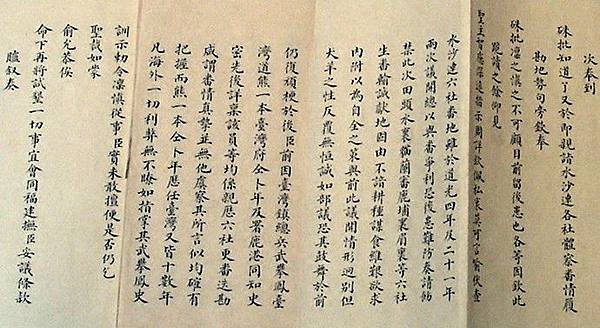 次奉到
硃批知道了又於即親詣水沙連各社體察番情履
勘地勢句旁欽奉
硃批凜之慎之不可顧目前留後患也各等因欽此
跪讀之餘仰見
聖主智慮深遠指示周詳欽佩私衷莫可言喻伏查
水沙連六社番地雖於道光四年及二十一年
兩次議開總以與番爭利恐後患難防奏請飭
禁此次田頭水裏猫蘭審鹿埔裏眉裏等六社
生番輸誠獻地因由不諳耕種謀食維艱欲求
內附以為自全之策與前此議開情形迥別但
犬羊之性反覆無恒誠如部議恐其鼓舞於前
仍復頑梗於後臣前因臺灣鎮總兵武攀鳳臺
灣道熊一本臺灣府仝卜年及署鹿港同知史
密先後詳稟該員等均係親歷六社史番逐勘
咸謂番情真摯並無他虞察其所言似均確有
把握而熊一本仝卜年歷任臺灣又皆十數年
凡海外一切利弊無不瞭如指掌其武攀鳳史
訓示勅令凜慎從事臣實未敢擅便是否仍乞
聖裁如蒙
俞允恭俟
命下再將試墾一切事宜會同福建撫臣妥議條款
臚叙奏